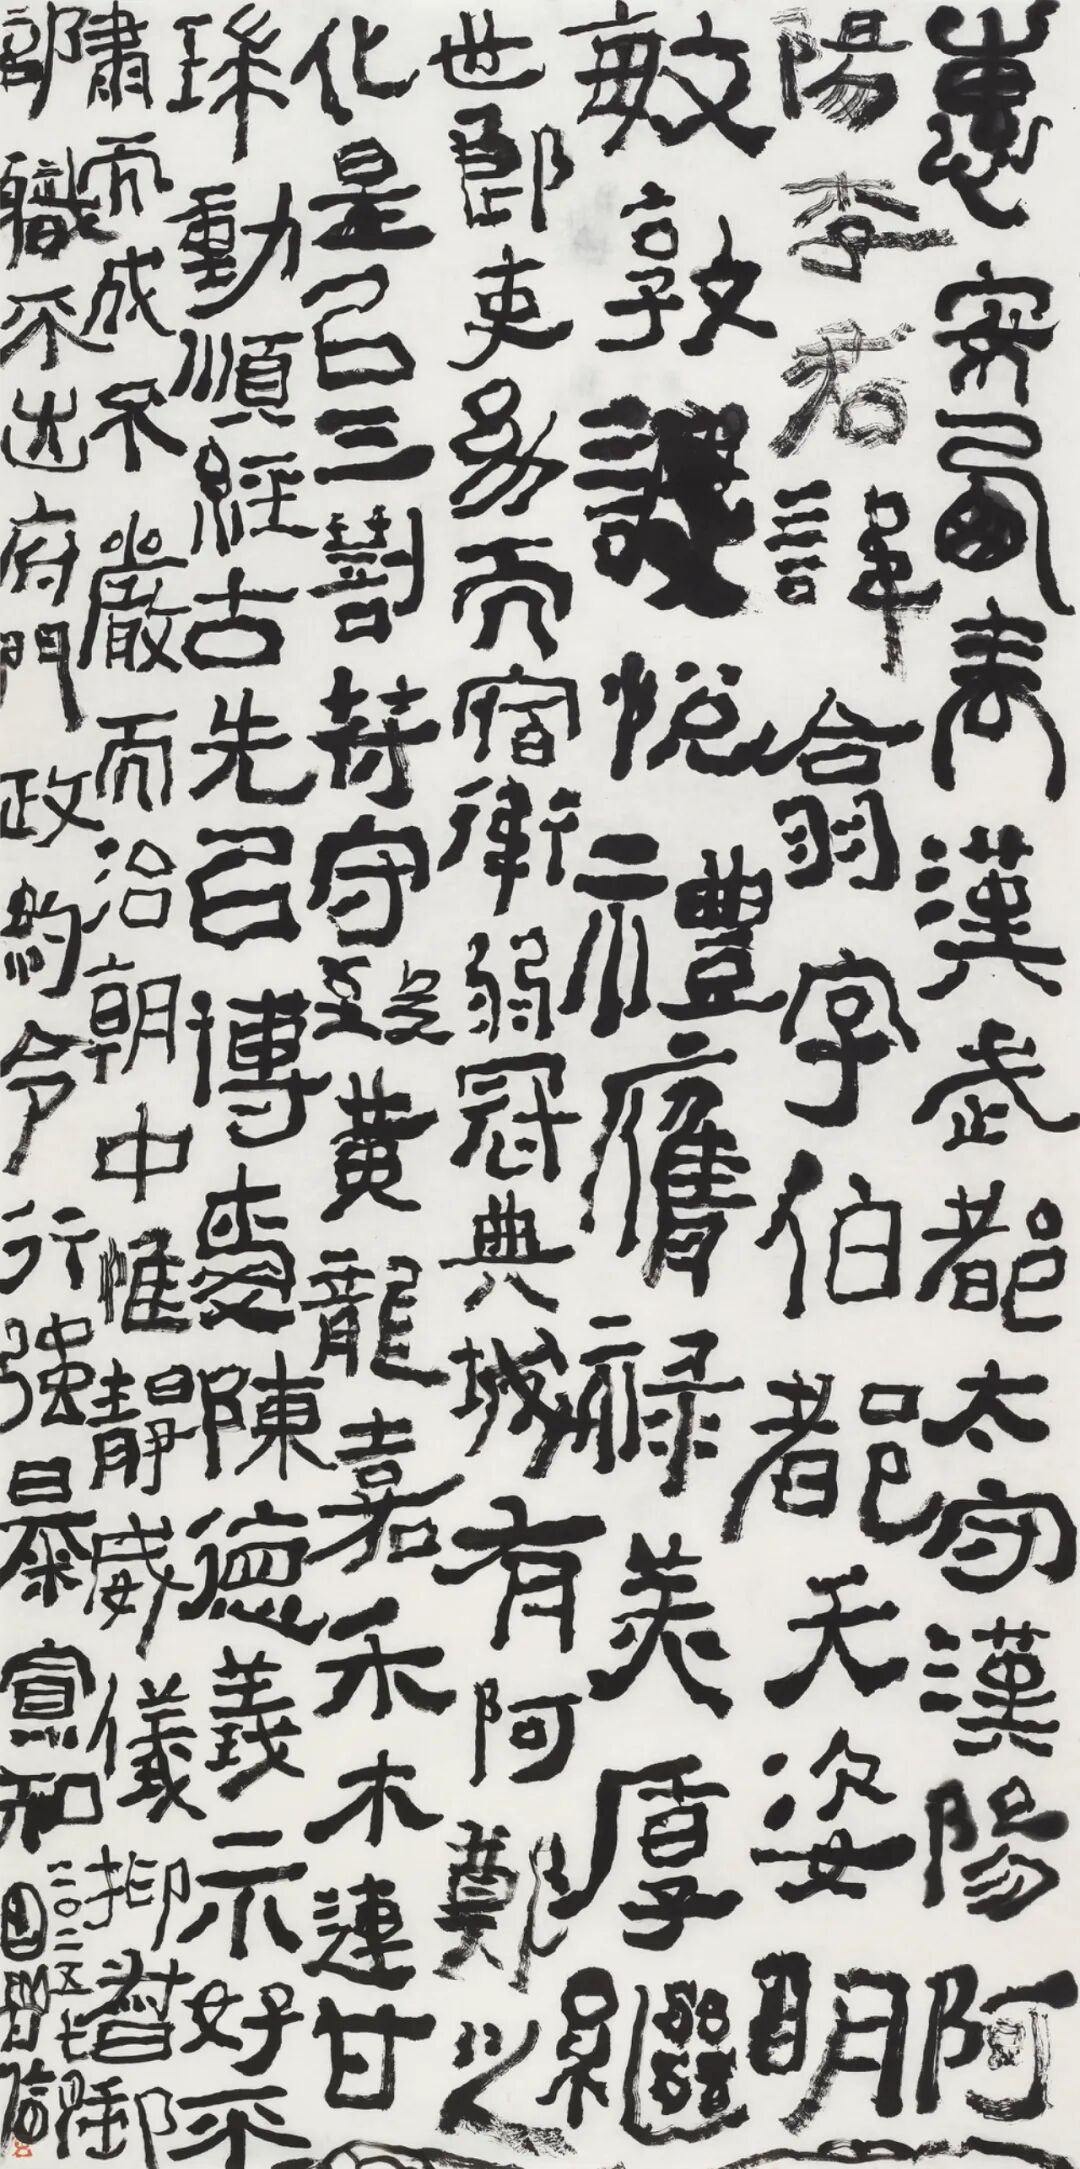 惠安西表漢武都太守漢陽阿
陽李君諱翕字伯都天姿明
敏敦詩悅禮膺祿美厚繼
世郎吏幼而宿衛弱冠典城有阿鄭之
化是㠯三剖符守致黃龍嘉禾木連甘
珠動順經古先㠯博愛陳德義示好不
肅而成不嚴而治朝中惟靜威儀抑督郵
部職不出府門政約令行強不暴寡知
二〇二五七